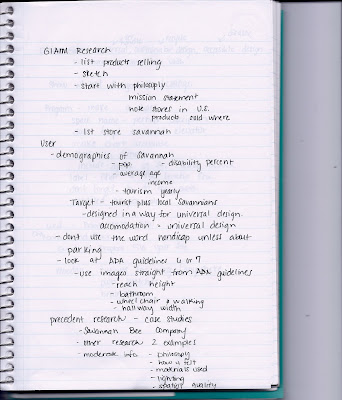 GIAMM Research
- list products selling
- sketch
- start with philosophy
mission statement
note stores in U.S.
products sold where
- 1st store savannah
User
- demographics of Savannah
- pop. - disability percent
- average age
income
- tourism yearly
Target - tourist plus local Savannians
- designed in a way for universal design
accomodation = universal design
- dont use the word handicap unless about
parking
- look at ADA guidelines 6 or 7
- use images straight from ADA guidelines
- reach height
- bathroom
- wheel chair & walking
- hallway width
precedent research - case studies
- Savannah Bee Company
- other research 2 examples
- moderate info - philosophy
- how it felt
- materials used
- lighting
- spatial quality